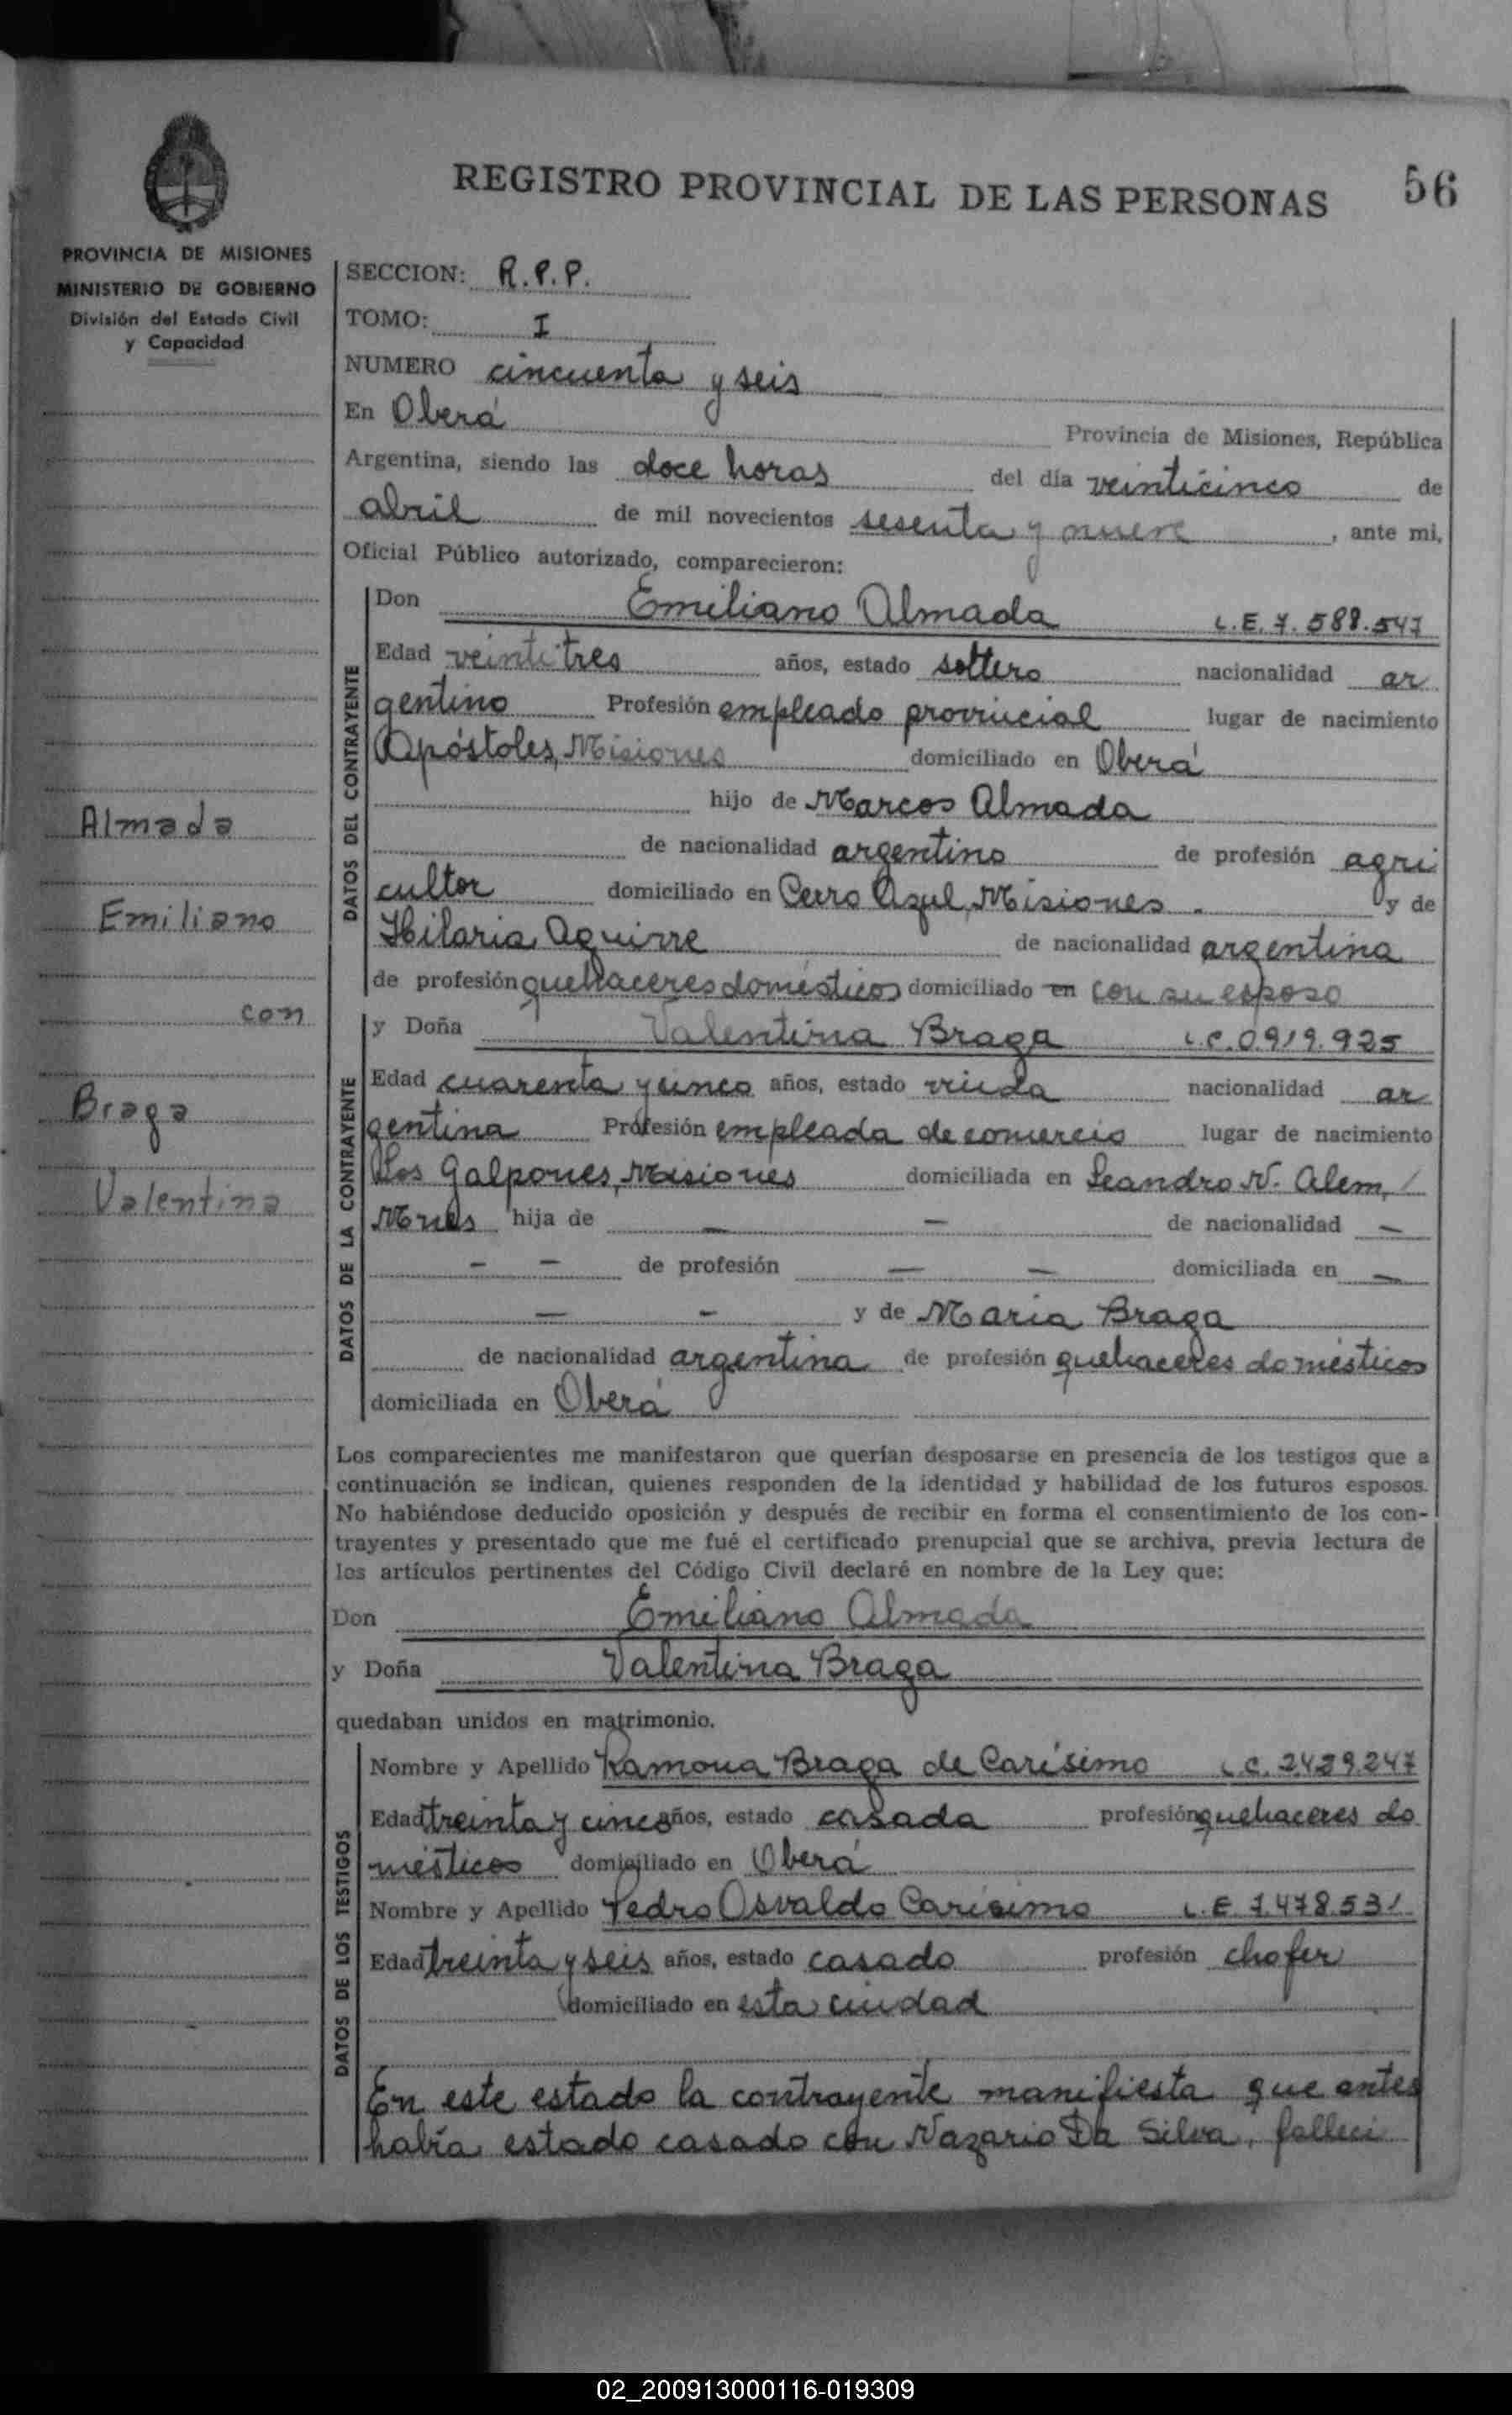 REGISTRO PROVINCIAL DE LAS PERSONAS 56
PROVINCIA DE MISIONES
MINISTERIO DE GOBIERNO
División del Estado Civil
y Capacidad
SECCION: R.P.P.
TOMO: I
NUMERO cincuenta y seis
En Oberá Provincia de Misiones, República
Argentina, siendo las doce horas del día veinticinco de
abril de mil novecientos sesenta y nueve, ante mi,
Oficial Público autorizado, comparecieron:
DATOS DEL CONTRAYENTE
Don Emiliano Almada L.E. 7.588.547
Edad veintitres años, estado soltero nacionalidad ar
gentino Profesión empleado provincial lugar de nacimiento
Apóstoles, Misiones domiciliado en Oberá
hijo de Marcos Almada
de nacionalidad argentino de profesión agri
cultor domiciliado en Cerro Azul, Misiones. y de
Hilaria Aguirre de nacionalidad argentina
de profesión quehaceres domésticos domiciliado en con su esposo
Almada
Emiliano
con
Braga
Valentina
DATOS DE LA CONTRAYENTE
y Doña Valentina Braga L.C. 0.919.925
Edad cuarenta y cinco años, estado viuda nacionalidad ar
gentina Profesión empleada de comercio lugar de nacimiento
Los Galpones, Misiones domiciliada en Leandro N. Alem, /
Mnes hija de — — de nacionalidad —
— — de profesión — — domiciliada en —
— — y de Maria Braga
de nacionalidad argentina de profesión quehaceres domésticos
domiciliada en Oberá
Los comparecientes me manifestaron que querían desposarse en presencia de los testigos que a
continuación se indican, quienes responden de la identidad y habilidad de los futuros esposos.
No habiéndose deducido oposición y después de recibir en forma el consentimiento de los con-
trayentes y presentado que me fué el certificado prenupcial que se archiva, previa lectura de
los artículos pertinentes del Código Civil declaré en nombre de la Ley que:
Don Emiliano Almada
y Doña Valentina Braga
quedaban unidos en matrimonio.
DATOS DE LOS TESTIGOS
Nombre y Apellido Ramona Braga de Carísimo L.C. 2.429.247
Edad treinta y cinco años, estado casada profesión quehaceres do
mésticos domiciliado en Oberá
Nombre y Apellido Pedro Osvaldo Carísimo L.E. 7.478.531
Edad treinta y seis años, estado casado profesión chofer
domiciliado en esta ciudad
En este estado la contrayente manifiesta que antes
había estado casado con Nazario Da Silva, falleci
02_200913000116-019309